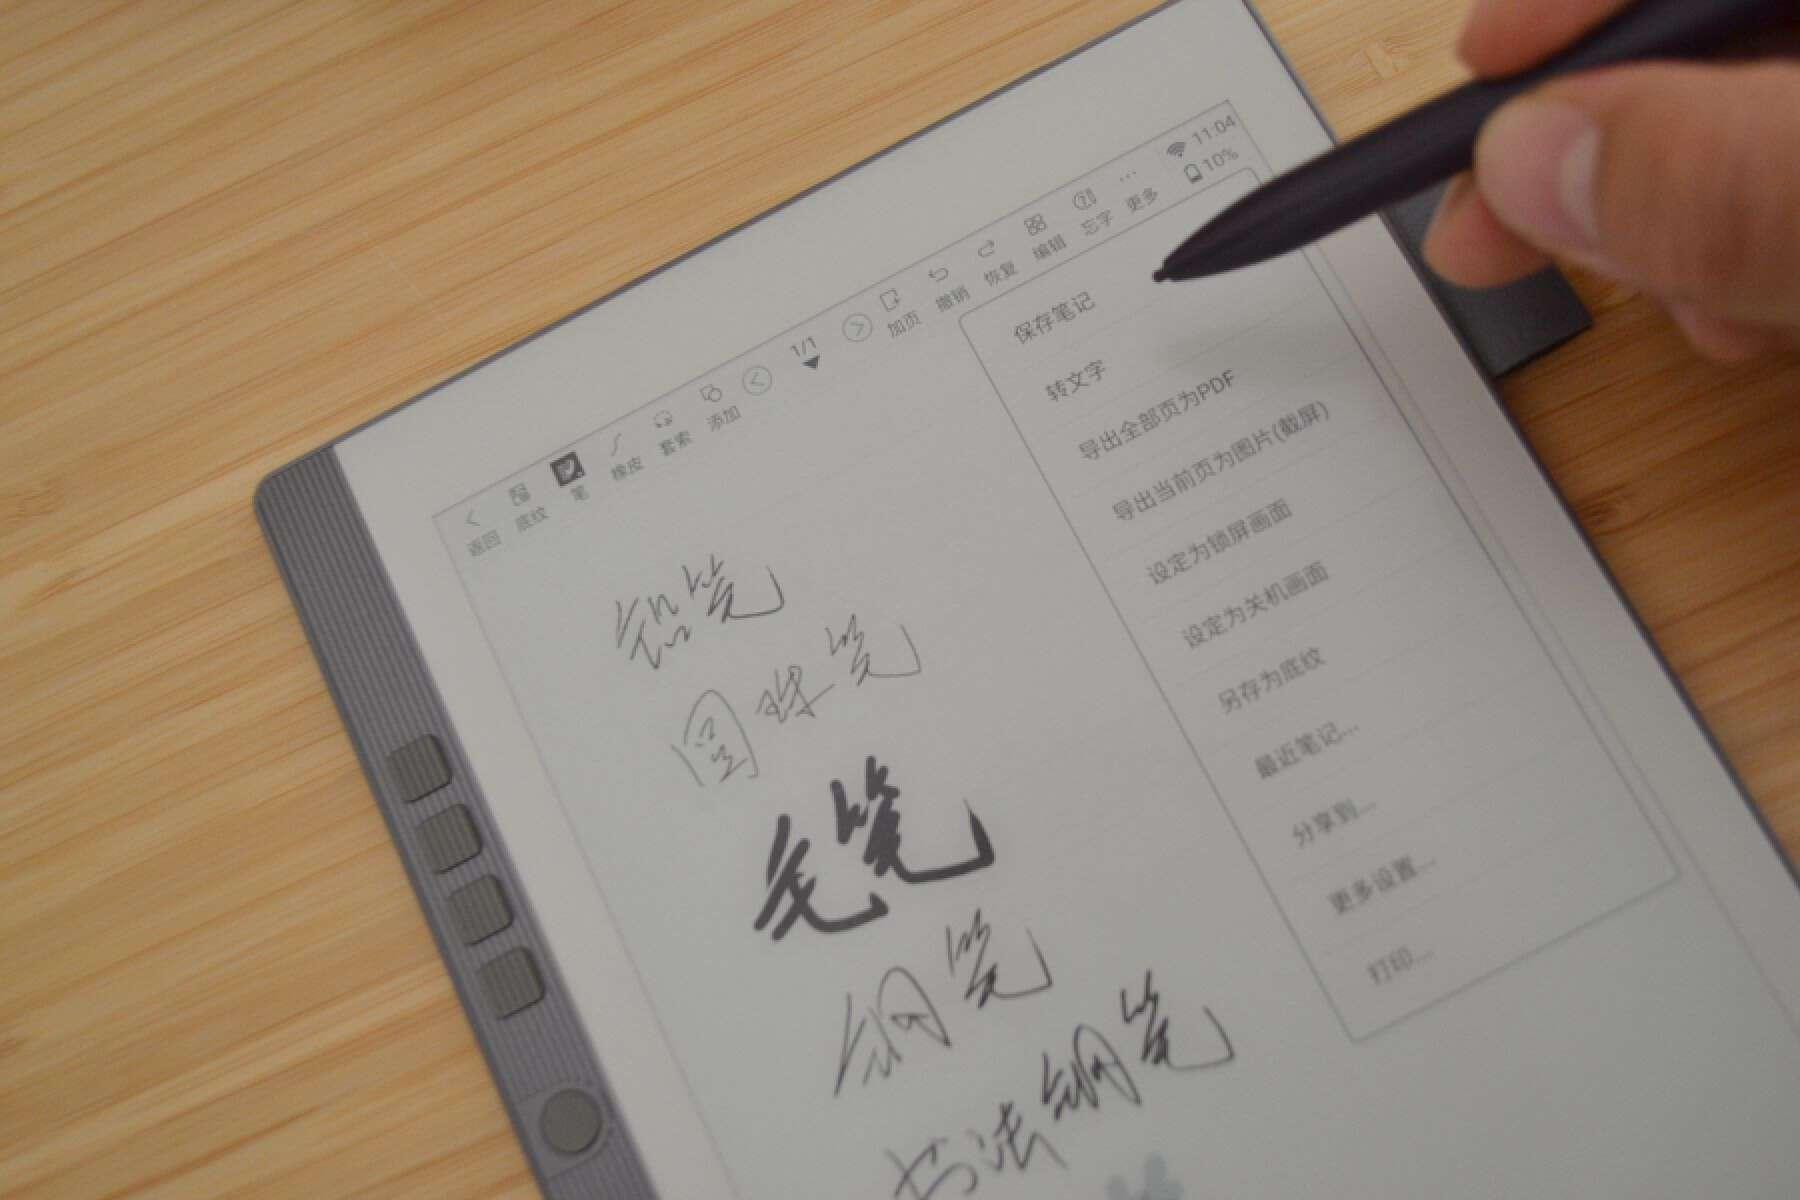 11:04
10%
返回 底纹 笔 橡皮 套索 添加 1/1 加页 撤销 恢复 编辑 忘字 更多
保存笔记
转文字
导出全部页为PDF
导出当前页为图片(截屏)
设定为锁屏画面
设定为关机画面
另存为底纹
最近笔记...
分享到...
更多设置...
打印...
铅笔
圆珠笔
毛笔
钢笔
书法钢笔